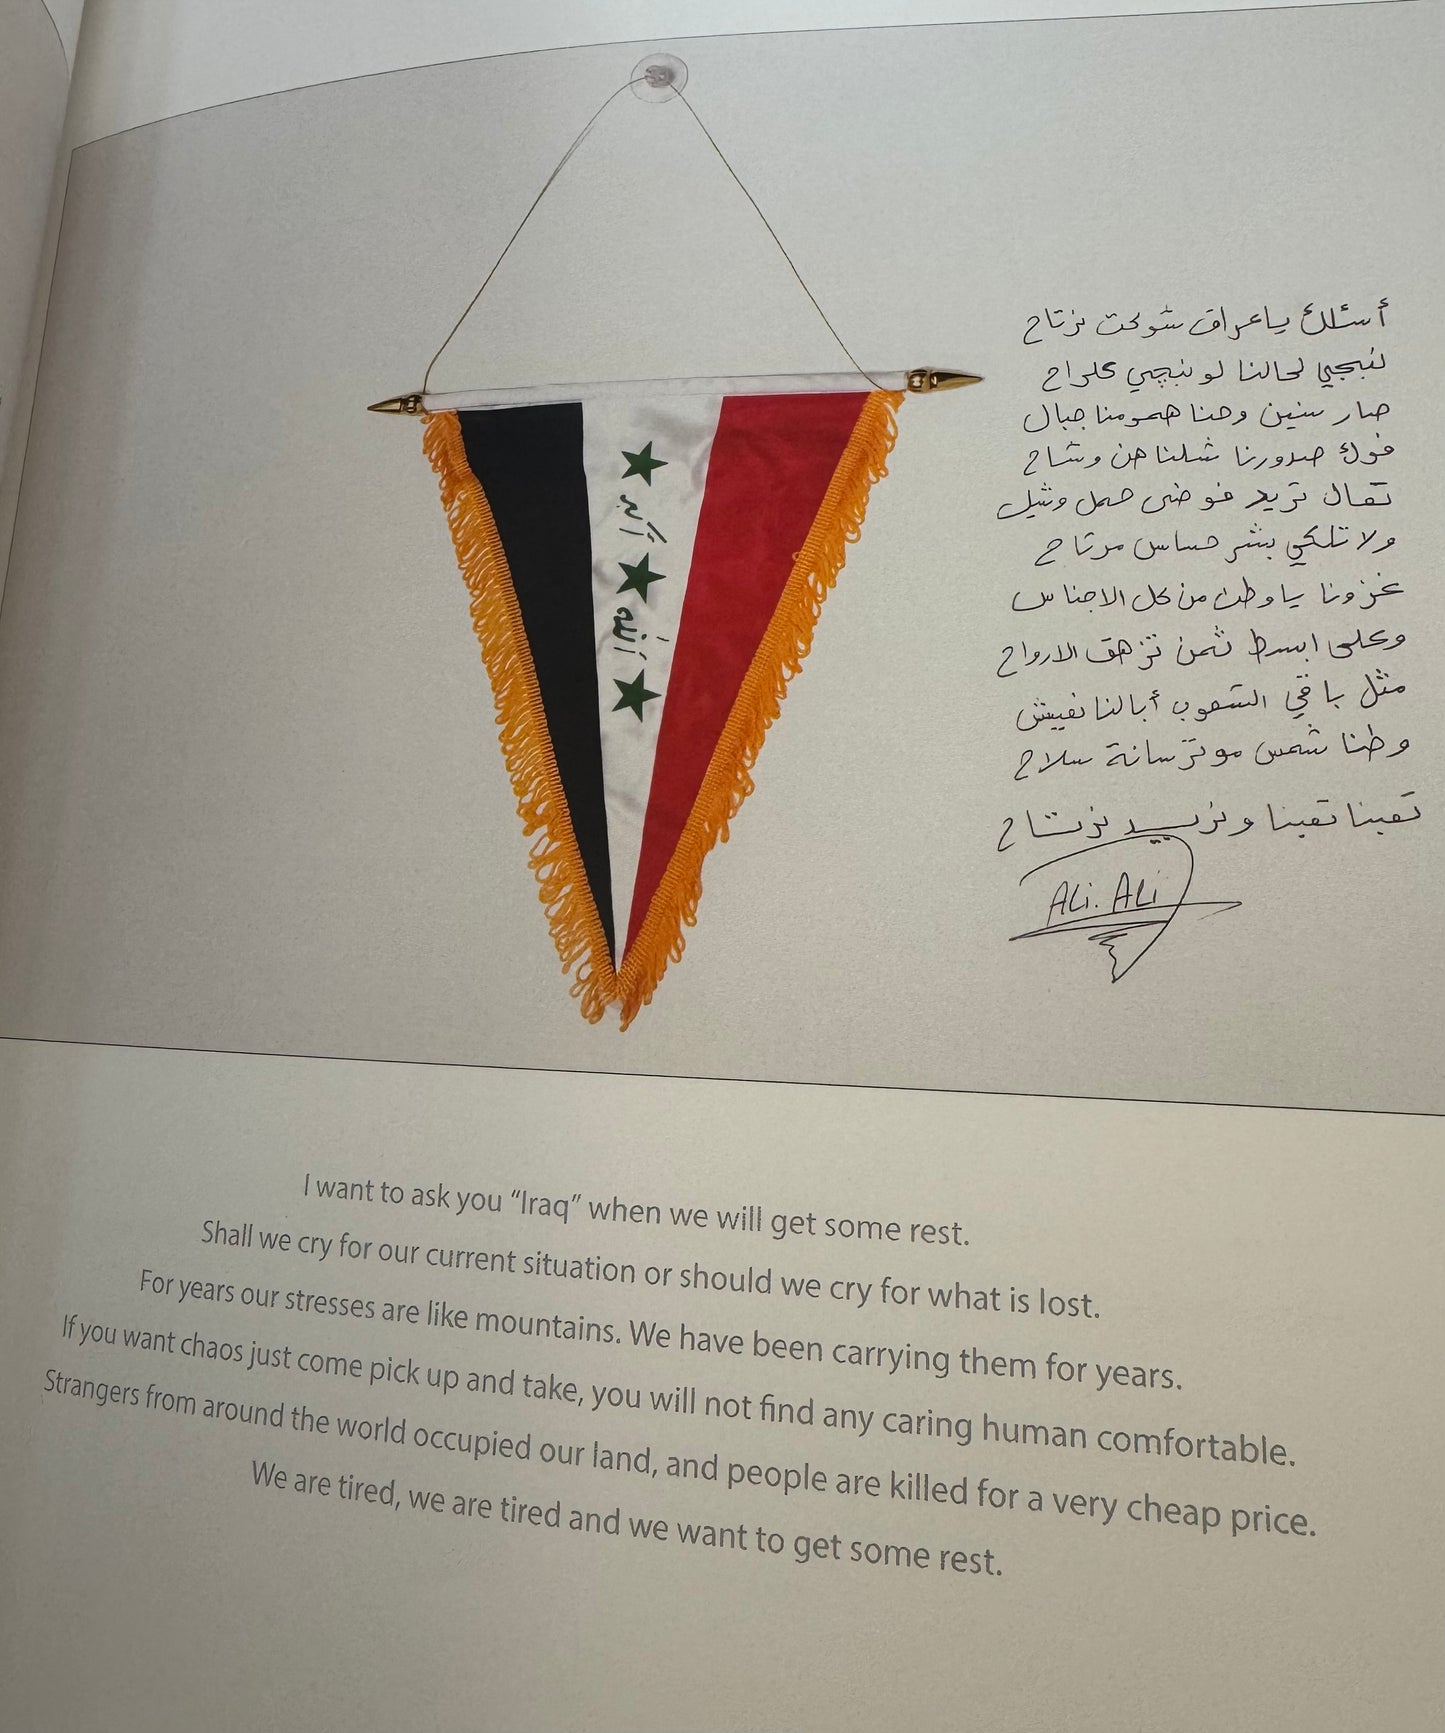 الله أكبر
أسئلك ياعراق شوكت نرتاح
لنبجي لحالنا لو نبچي علراح
صار سنين وحنا همومنا جبال
فوك صدورنا شلناهن وشاح
تعال تريد فوضى حمل وشيل
ولا تلكي بشر حساس مرتاح
غزونا يا وطن من كل الاجناس
وعلى ابسط ثمن تزهق الارواح
مثل باقي الشعوب أبالنا نعيش
وطنا شمس مو ترسانة سلاح
تعبنا تعبنا ونريد نرتاح
Ali. Ali
I want to ask you “Iraq” when we will get some rest.
Shall we cry for our current situation or should we cry for what is lost.
For years our stresses are like mountains. We have been carrying them for years.
If you want chaos just come pick up and take, you will not find any caring human comfortable.
Strangers from around the world occupied our land, and people are killed for a very cheap price.
We are tired, we are tired and we want to get some rest.